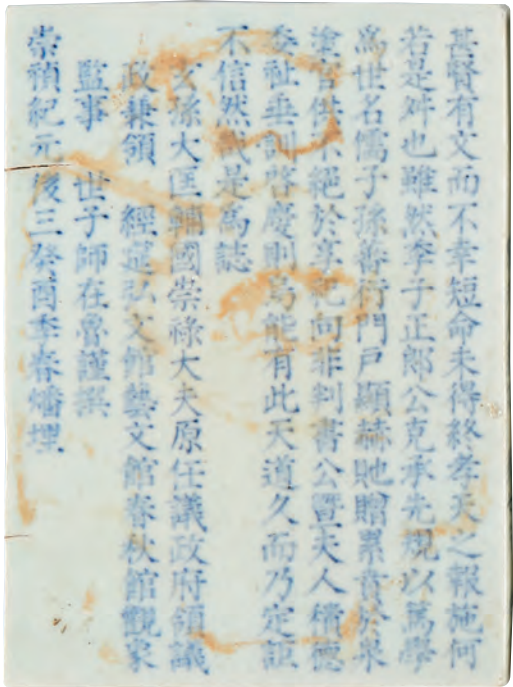 甚賢有文而不幸短命未得終孝天之報施何
若是舛也雖然季子正郎公克承先規以篤學
爲世名儒子孫蕃衍門戶顯赫貤贈累賁於泉
塗官供不絕於享祀向非判書公曁夫人積德
委祉垂訓啓慶則烏能有此天道久而乃定詎
不信然哉是爲誌
玄孫大匡輔國崇祿大夫原任議政府領議
政兼領 經筵弘文館藝文館春秋館觀象
監事 世子師在魯謹撰
崇禎紀元後三癸酉季春燔埋